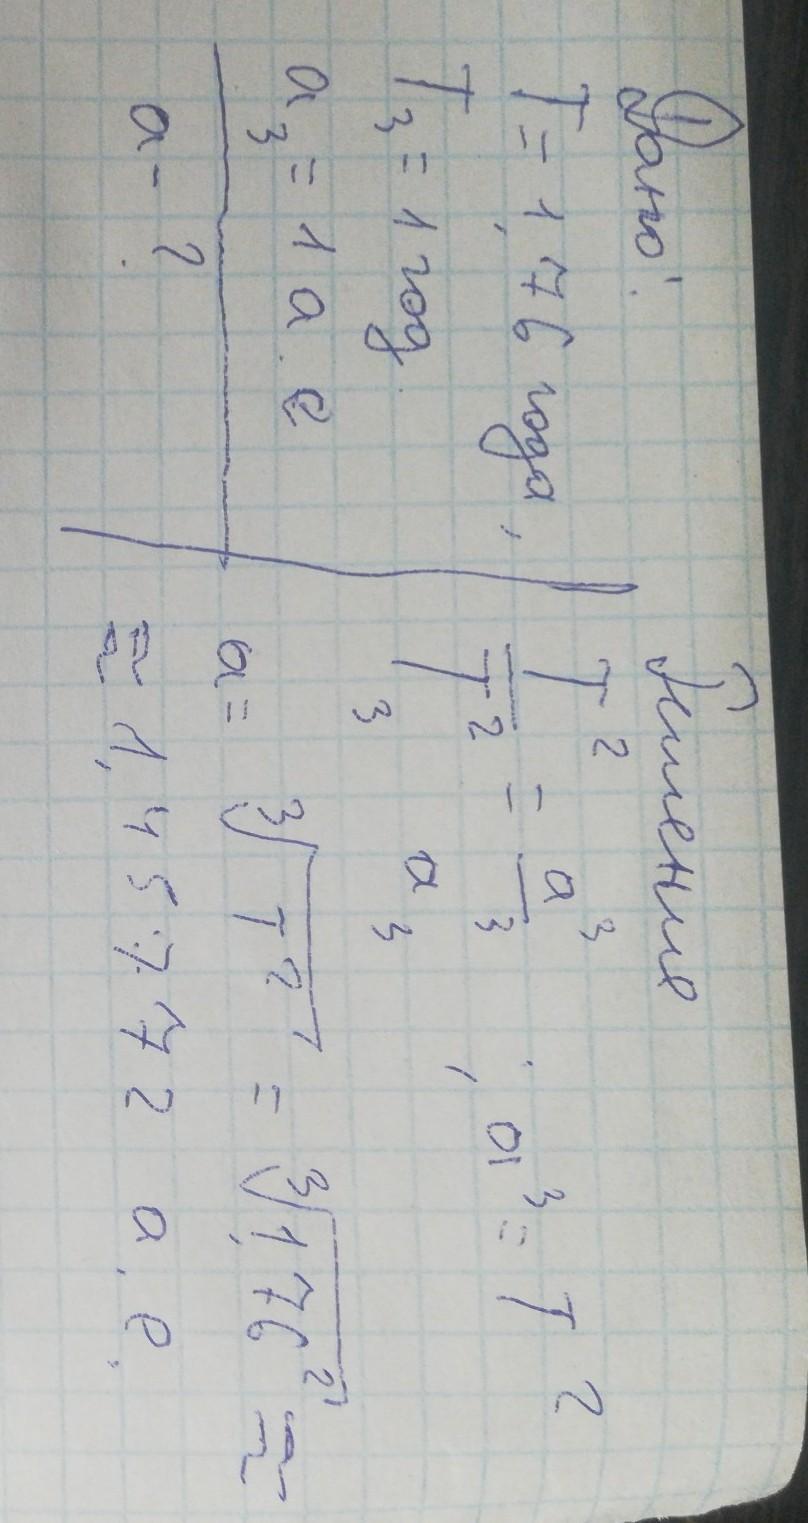 Дано:
T = 1,76 года,
T₃ = 1 год.
a₃ = 1 а.е
a - ?
Решение
T²/T₃² = a³/a₃³ ; a³ = T²
a = ∛T² = ∛1,76² ≈
≈ 1,45772 а.е.